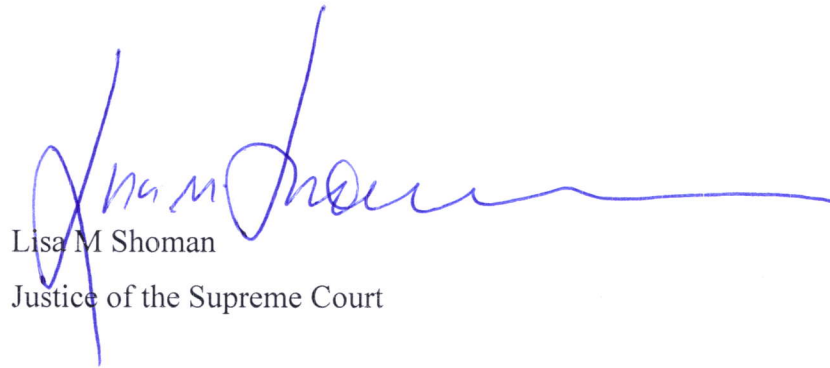 Lisa M Shoman
Lisa M Shoman
Justice of the Supreme Court